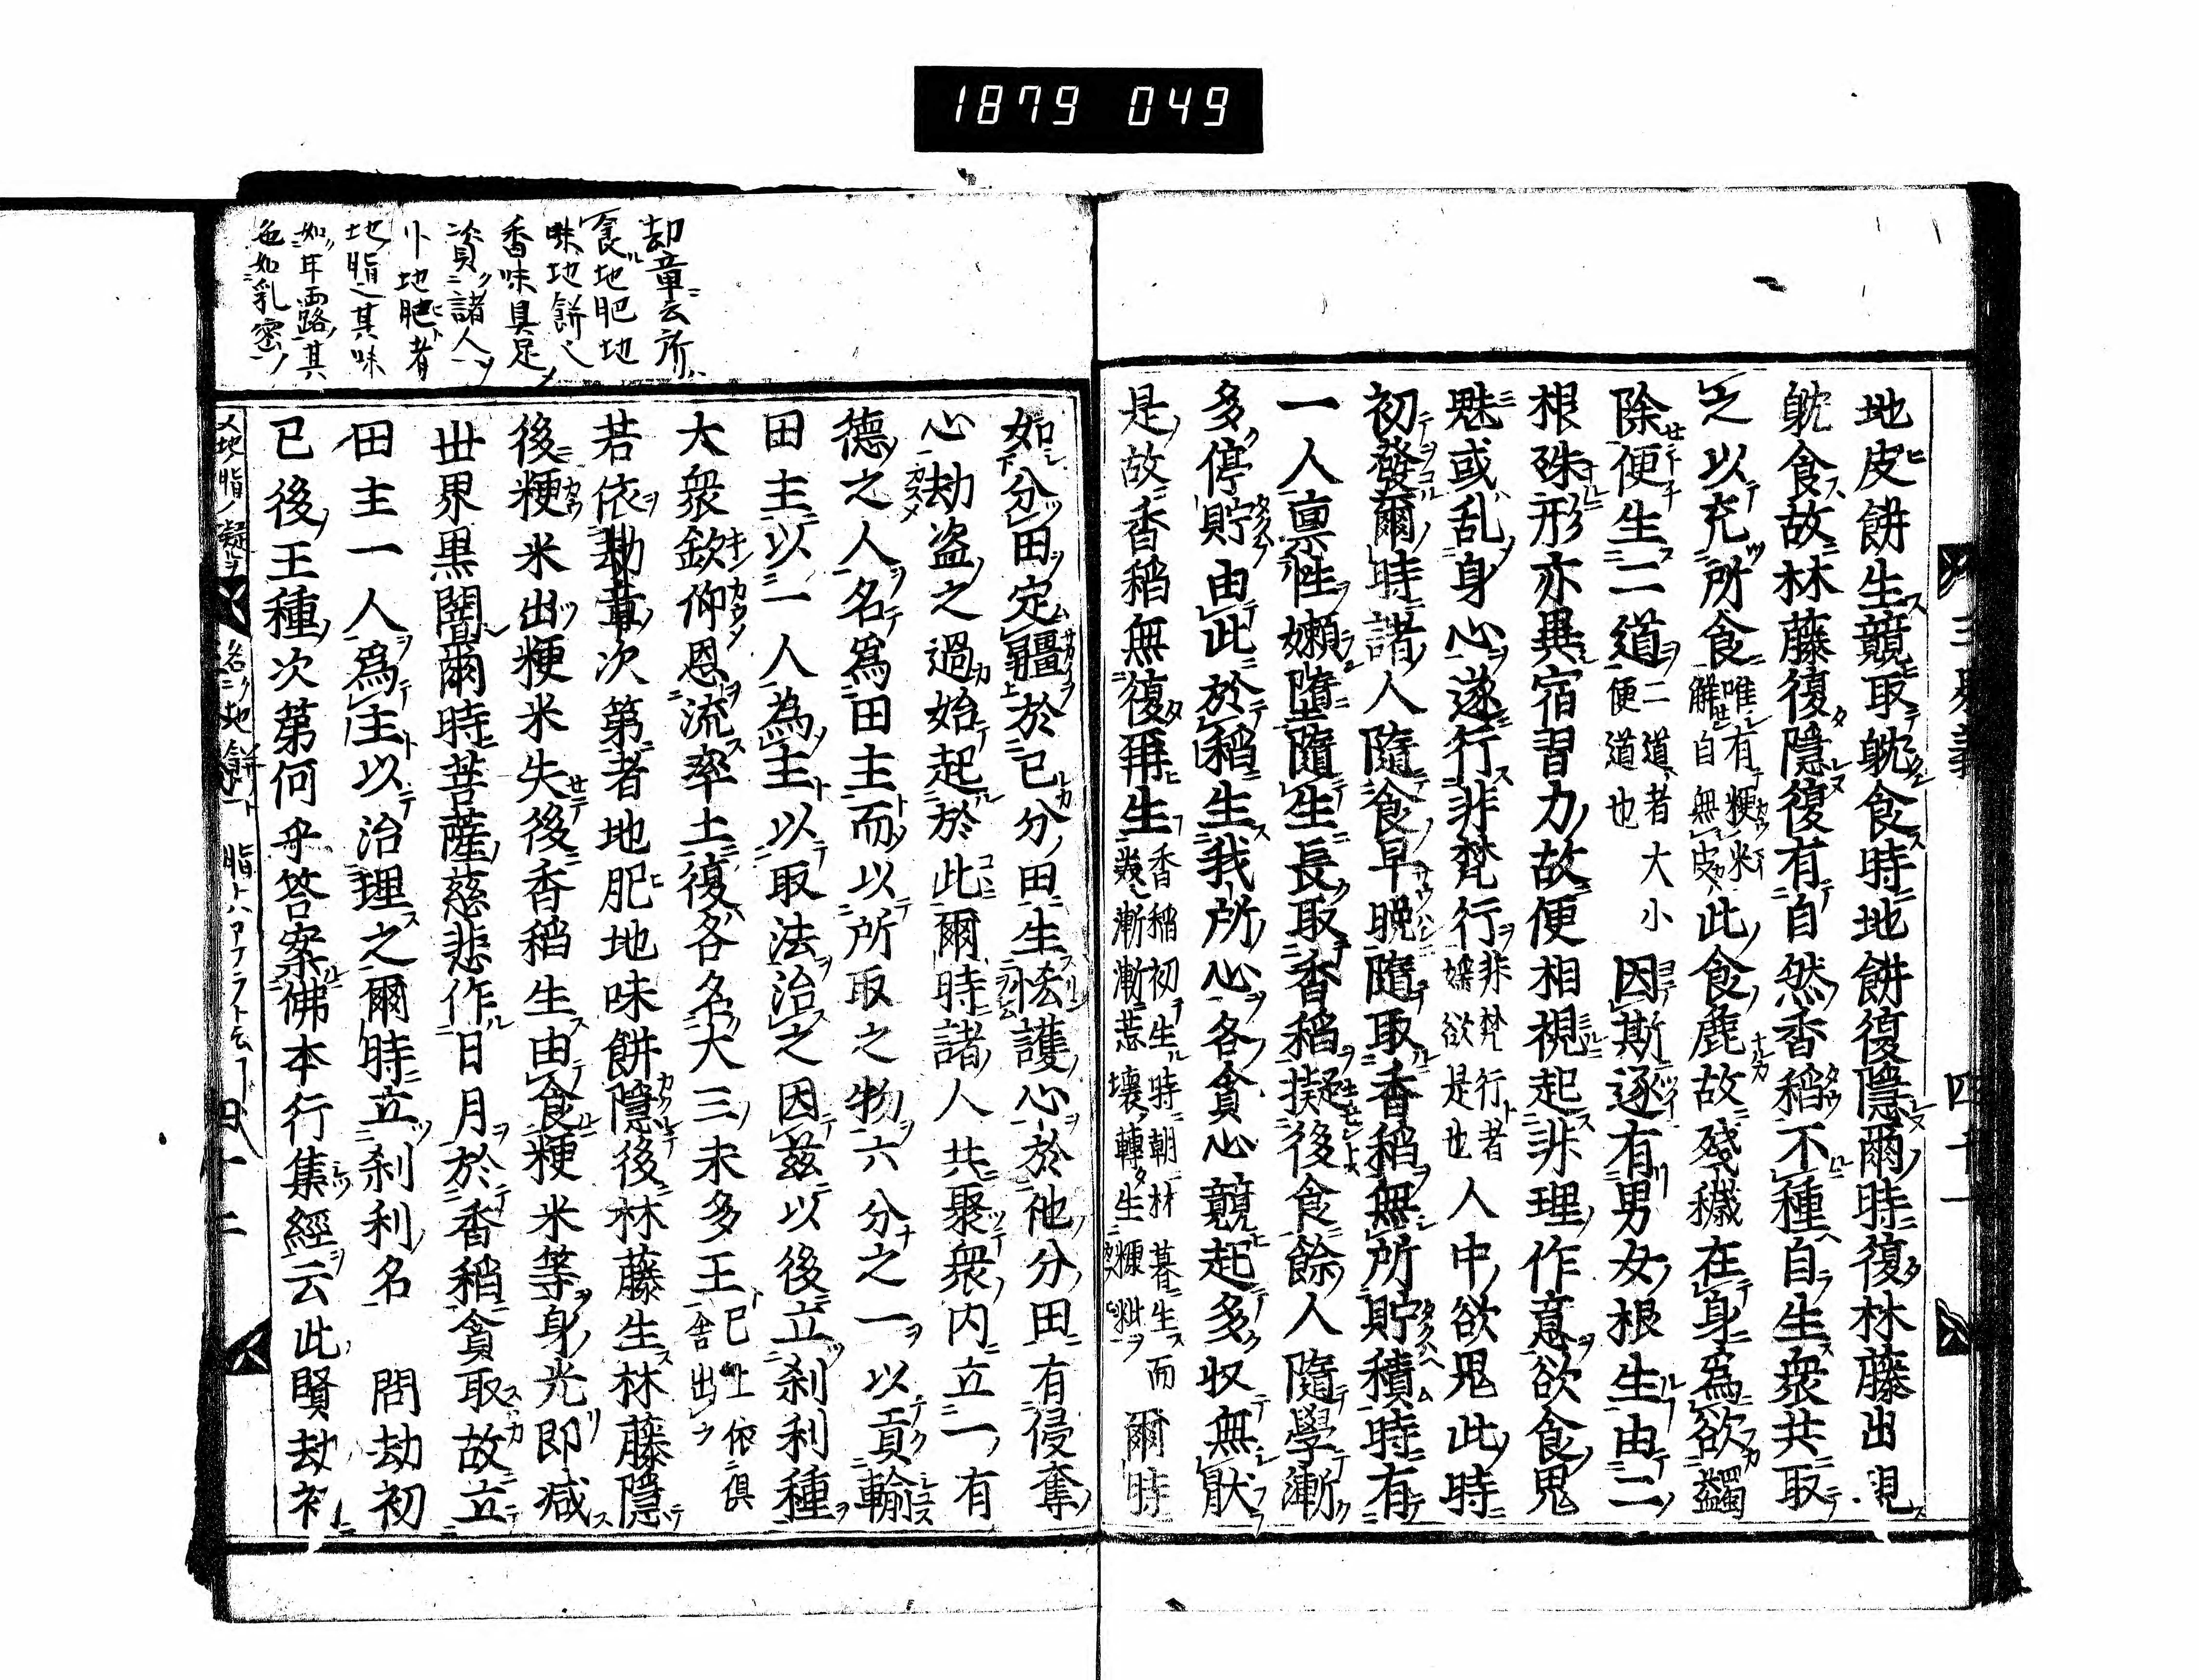 1879 049
地皮餅生競取躭食時地餅復隱爾時復林藤出現
躭食故林藤復隱復有自然香稻不種自生衆共取
之以充所食唯有粳米皮解自無此食麁故殘穢在身爲欲蠲
除便生二道二道者大小便道也因斯遂有男女根生由二
根殊形亦異宿習力故便相視起非理作意欲食鬼
魅或乱身心遂行非梵行非梵行者婬欲是也人中欲鬼此時
初發爾時諸人隨食早晩隨取香稻無所貯積時有
一人禀性嬾墮隨生長取香稻擬後食餘人隨學漸
多停貯由此於稻生我所心各貪心競起多収無猒
是故香稻無復再生香稻初生時朝林暮生而漸漸惡壞轉生糠粃爾時
如分田定疆於己分田生悋護心於他分田有侵奪
心劫盗之過始起於此爾時諸人共聚衆内立一有
德之人名爲田主而以所取之物六分之一以貢輸
田主以一人為主以取法治之因茲以後立刹利種
大衆欽仰恩流率土復各名大三末多王已上依倶舍出
若依劫章次第者地肥地味餅隱後林藤生林藤隱
後粳米出粳米失後香稻生由食粳米等身光即減
世界黒闇爾時菩薩慈悲作日月於香稻貪取故立
田主一人爲主以治理之爾時立刹利名　問劫初
已後王種次第何乎答案佛本行集經云此賢劫初
三界義
四十一
四十二
劫章云所
食地肥地
味地餅
香味具足
資諸人
地肥者
地脂其味
如甘露其
色如乳蜜
又地脂凝
名地餅